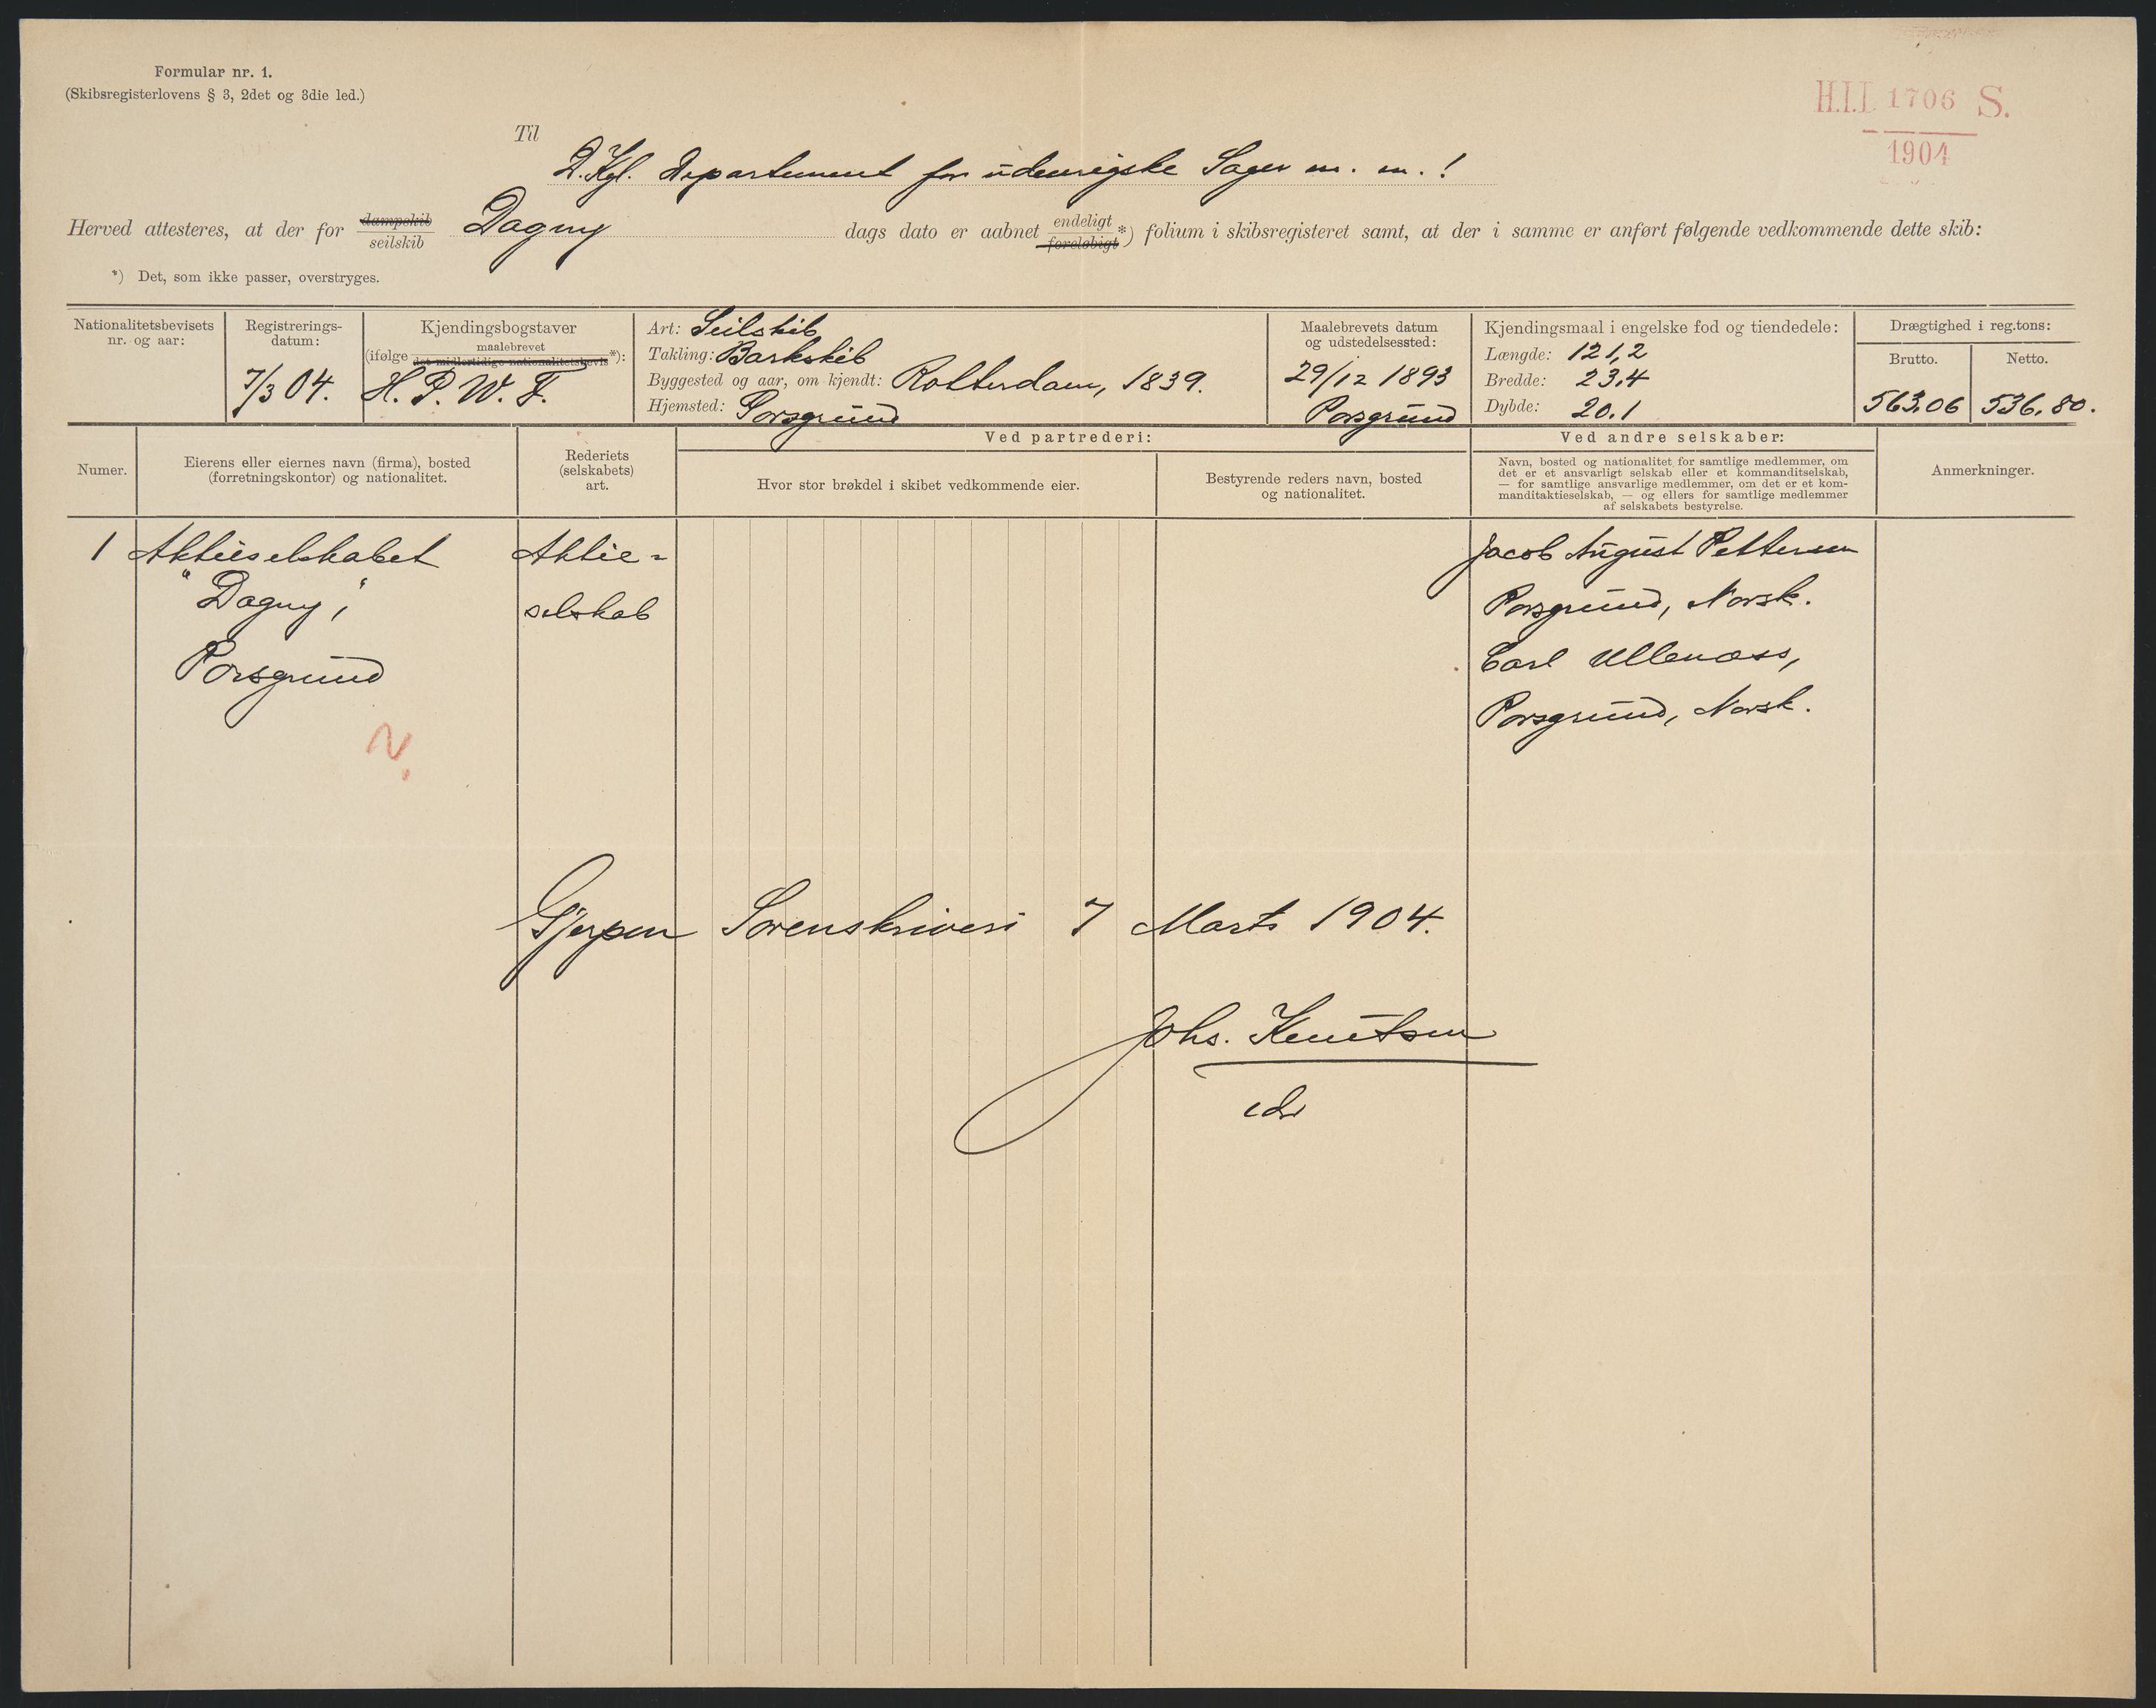 Formular nr. 1.
(Skibsregisterlovens § 3, 2det og 3die led.)
H.I.J. 1706 S.
1904
Til
D. Kgl. Departement for udenrigske Sager m. m.!
Herved attesteres, at der for dampskib seilskib Dagny dags dato er aabnet endeligt foreløbigt *) folium i skibsregisteret samt, at der i samme er anført følgende vedkommende dette skib:
*) Det, som ikke passer, overstryges.
Nationalitetsbevisets nr. og aar:
Registrerings-datum:
7/3 04.
Kjendingsbogstaver
(ifølge maalebrevet det midlertidige nationalitetsbevis *):
H. P. W. F.
Art: Seilskib
Takling: Barkskib
Byggested og aar, om kjendt: Rotterdam, 1839.
Hjemsted: Porsgrund
Maalebrevets datum og udstedelsessted:
29/12 1893
Porsgrund
Kjendingsmaal i engelske fod og tiendedele:
Længde: 121,2
Bredde: 23,4
Dybde: 20.1
Drægtighed i reg.tons:
Brutto. Netto.
563.06 536.80.
Numer.
Eierens eller eiernes navn (firma), bosted
(forretningskontor) og nationalitet.
Rederiets
(selskabets)
art.
Ved partrederi:
Hvor stor brøkdel i skibet vedkommende eier.
Bestyrende reders navn, bosted
og nationalitet.
Ved andre selskaber:
Navn, bosted og nationalitet for samtlige medlemmer, om
det er et ansvarligt selskab eller et kommanditselskab,
— for samtlige ansvarlige medlemmer, om det er et kom-
manditaktieselskab, — og ellers for samtlige medlemmer
af selskabets bestyrelse.
Anmerkninger.
1 Aktieselskabet
"Dagny",
Porsgrund
N.
Aktie=
selskab
Jacob August Pettersen
Porsgrund, Norsk.
Carl Ullenæss,
Porsgrund, Norsk.
Gjerpen Sorenskriveri 7 Marts 1904.
Johs. Knutsen